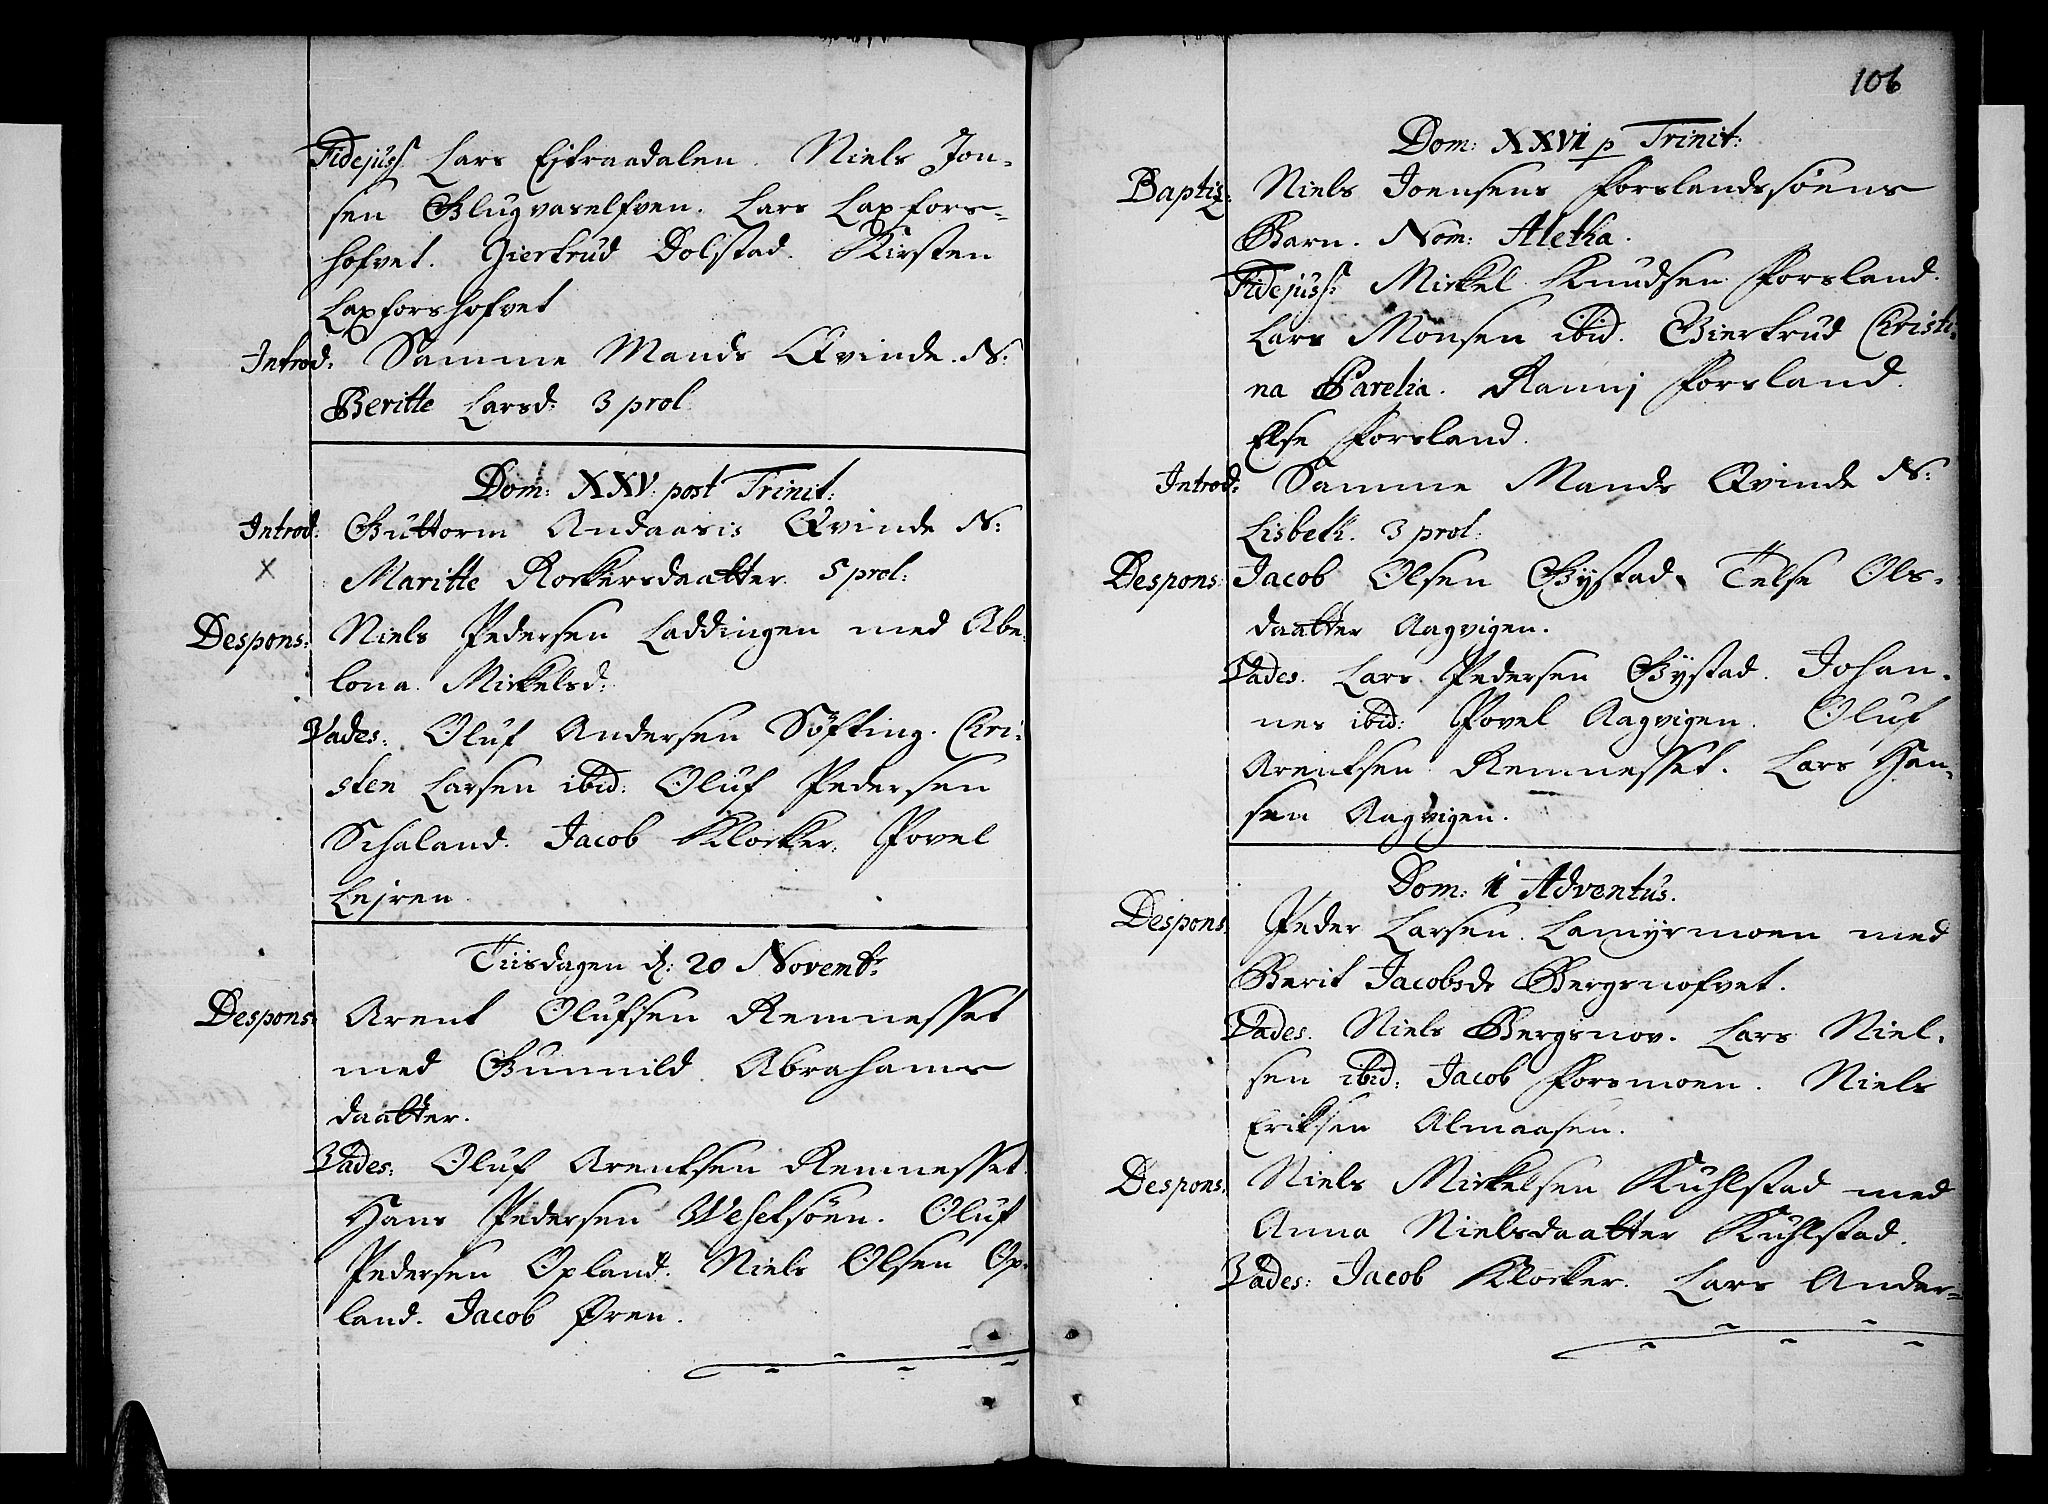 Fidejuss. Lars Ejteraadalen. Niels Jon-
sen Glugvaselfven. Lars Laxfors-
hofvet. Giertrud Dolstad. Kirsten
Laxforshofvet
Introd: Samme Mands Qvinde. N:
Beritte Larsd: 3 prol.
Dom: XXV: post Trinit:
Introd: Guttorm Andaasis Qvinde N:
x Maritte Rockersdaatter. 5 prol:
Despons: Niels Pedersen Laddingen med Abe-
lona Mickelsd:
Vades: Oluf Andersen Söfting. Chri-
sten Larsen ibid: Oluf Pedersen
Schaland. Jacob Klocker. Povel
Lejren.
Tiisdagen d: 20 Novembr.
Despons: Arent Olufsen Remnesset
med Gunnild Abrahams
daatter.
Vades: Oluf Arentsen Remnesset.
Hans Pedersen Wehelsöen. Oluf
Pedersen Opland. Niels Olsen Op-
land. Jacob Øren.
106
Dom: XXVI p Trinit:
Baptiz: Niels Joensens Forslandssöens
Barn. Nom: Aletha.
Fidejuss: Mickel Knudsen Forsland.
Lars Monsen ibid. Giertrud Christi-
na Parelia. Rannj Forsland.
Else Forsland.
Introd: Samme Mands Qvinde N:
Lisbeth. 3 prol:
Despons: Jacob Olsen Bÿstad. Telse Ols-
daatter Aagvigen.
Vades. Lars Pedersen Bÿstad. Johan-
nes ibid: Povel Aagvigen. Oluf
Arentsen Remnesset. Lars Han-
sen Aagvigen.
Dom: ii Adventus.
Despons. Peder Larsen Lamyrmoen med
Berit Jacobsdr Bergsnofvet.
Vades. Niels Bergsnov. Lars Niel-
sen ibid: Jacob Forsmoen. Niels
Eriksen Almaasen.
Despons: Niels Mickelsen Kuhlstad med
Anna Nielsdaatter Kuhlstad.
Vades: Jacob Klocker. Lars Ander-